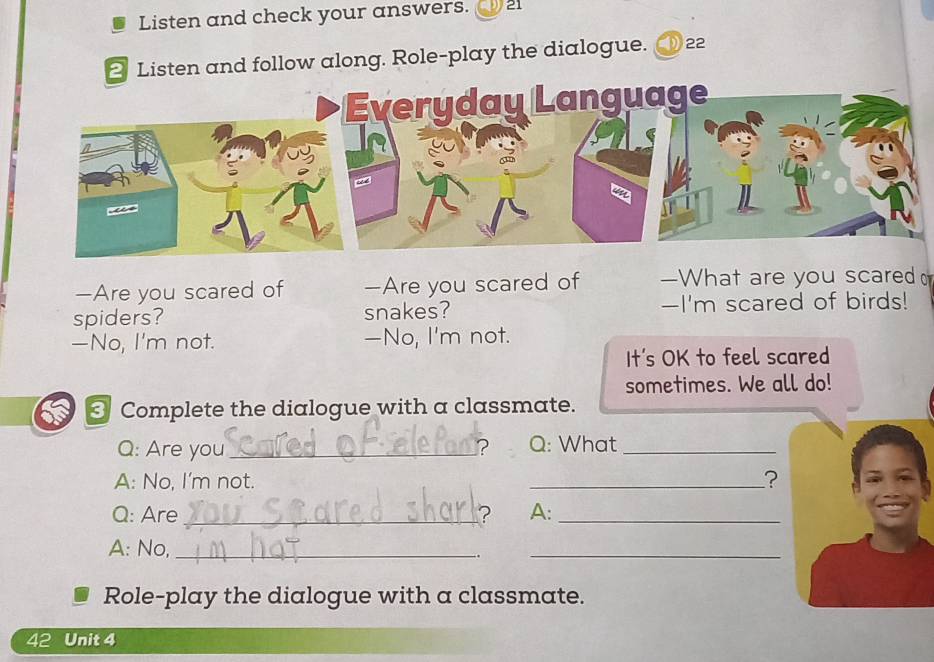 Listen and check your answers. 21
2 Listen and follow along. Role-play the dialogue. 22
Everyday Language
—Are you scared of
spiders?
—No, I'm not.
—Are you scared of
snakes?
—No, I'm not.
—What are you scared
—I'm scared of birds!
It's OK to feel scared
sometimes. We all do!
3 Complete the dialogue with a classmate.
Q: Are you Scared of elefant?
A: No, I'm not.
Q: Are you scared shark?
A: No, im not.
Q: What
?
A:
Role-play the dialogue with a classmate.
42 Unit 4